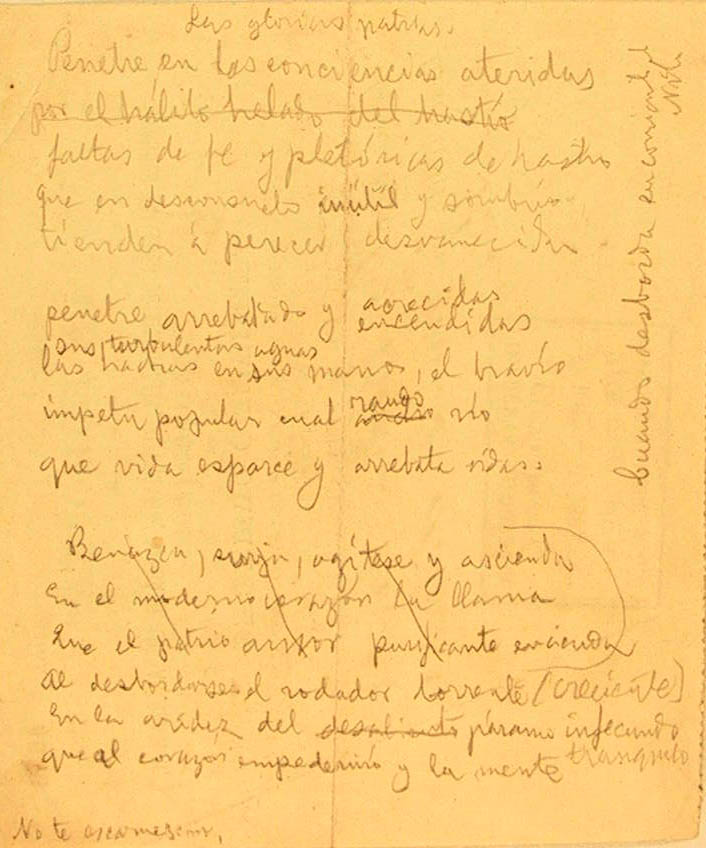 Las glorias patrias.
Penetre en las conciencias ateridas
por el hálito helado del hastío
faltas de fe y pletóricas de hastío
que en desconsuelo inútil y sombrío
tienden á perecer desvanecidas
penetre arrebatado y acrecidas
encendidas
sus turbulentas aguas
las hachas en sus manos, el bravío
ímpetu popular cual raudo
ancho río
que vida esparce y arrebata vidas.
Renazca, surja, agítese y ascienda
En el moderno corazón la llama
Que el patrio amor purificante encienda
Al desbordarse el rodador torrente (creciente)
En la aridez del desaliento páramo infecundo
que al corazón empedernió y la mente tranquilo
No te
Cuando desborda en